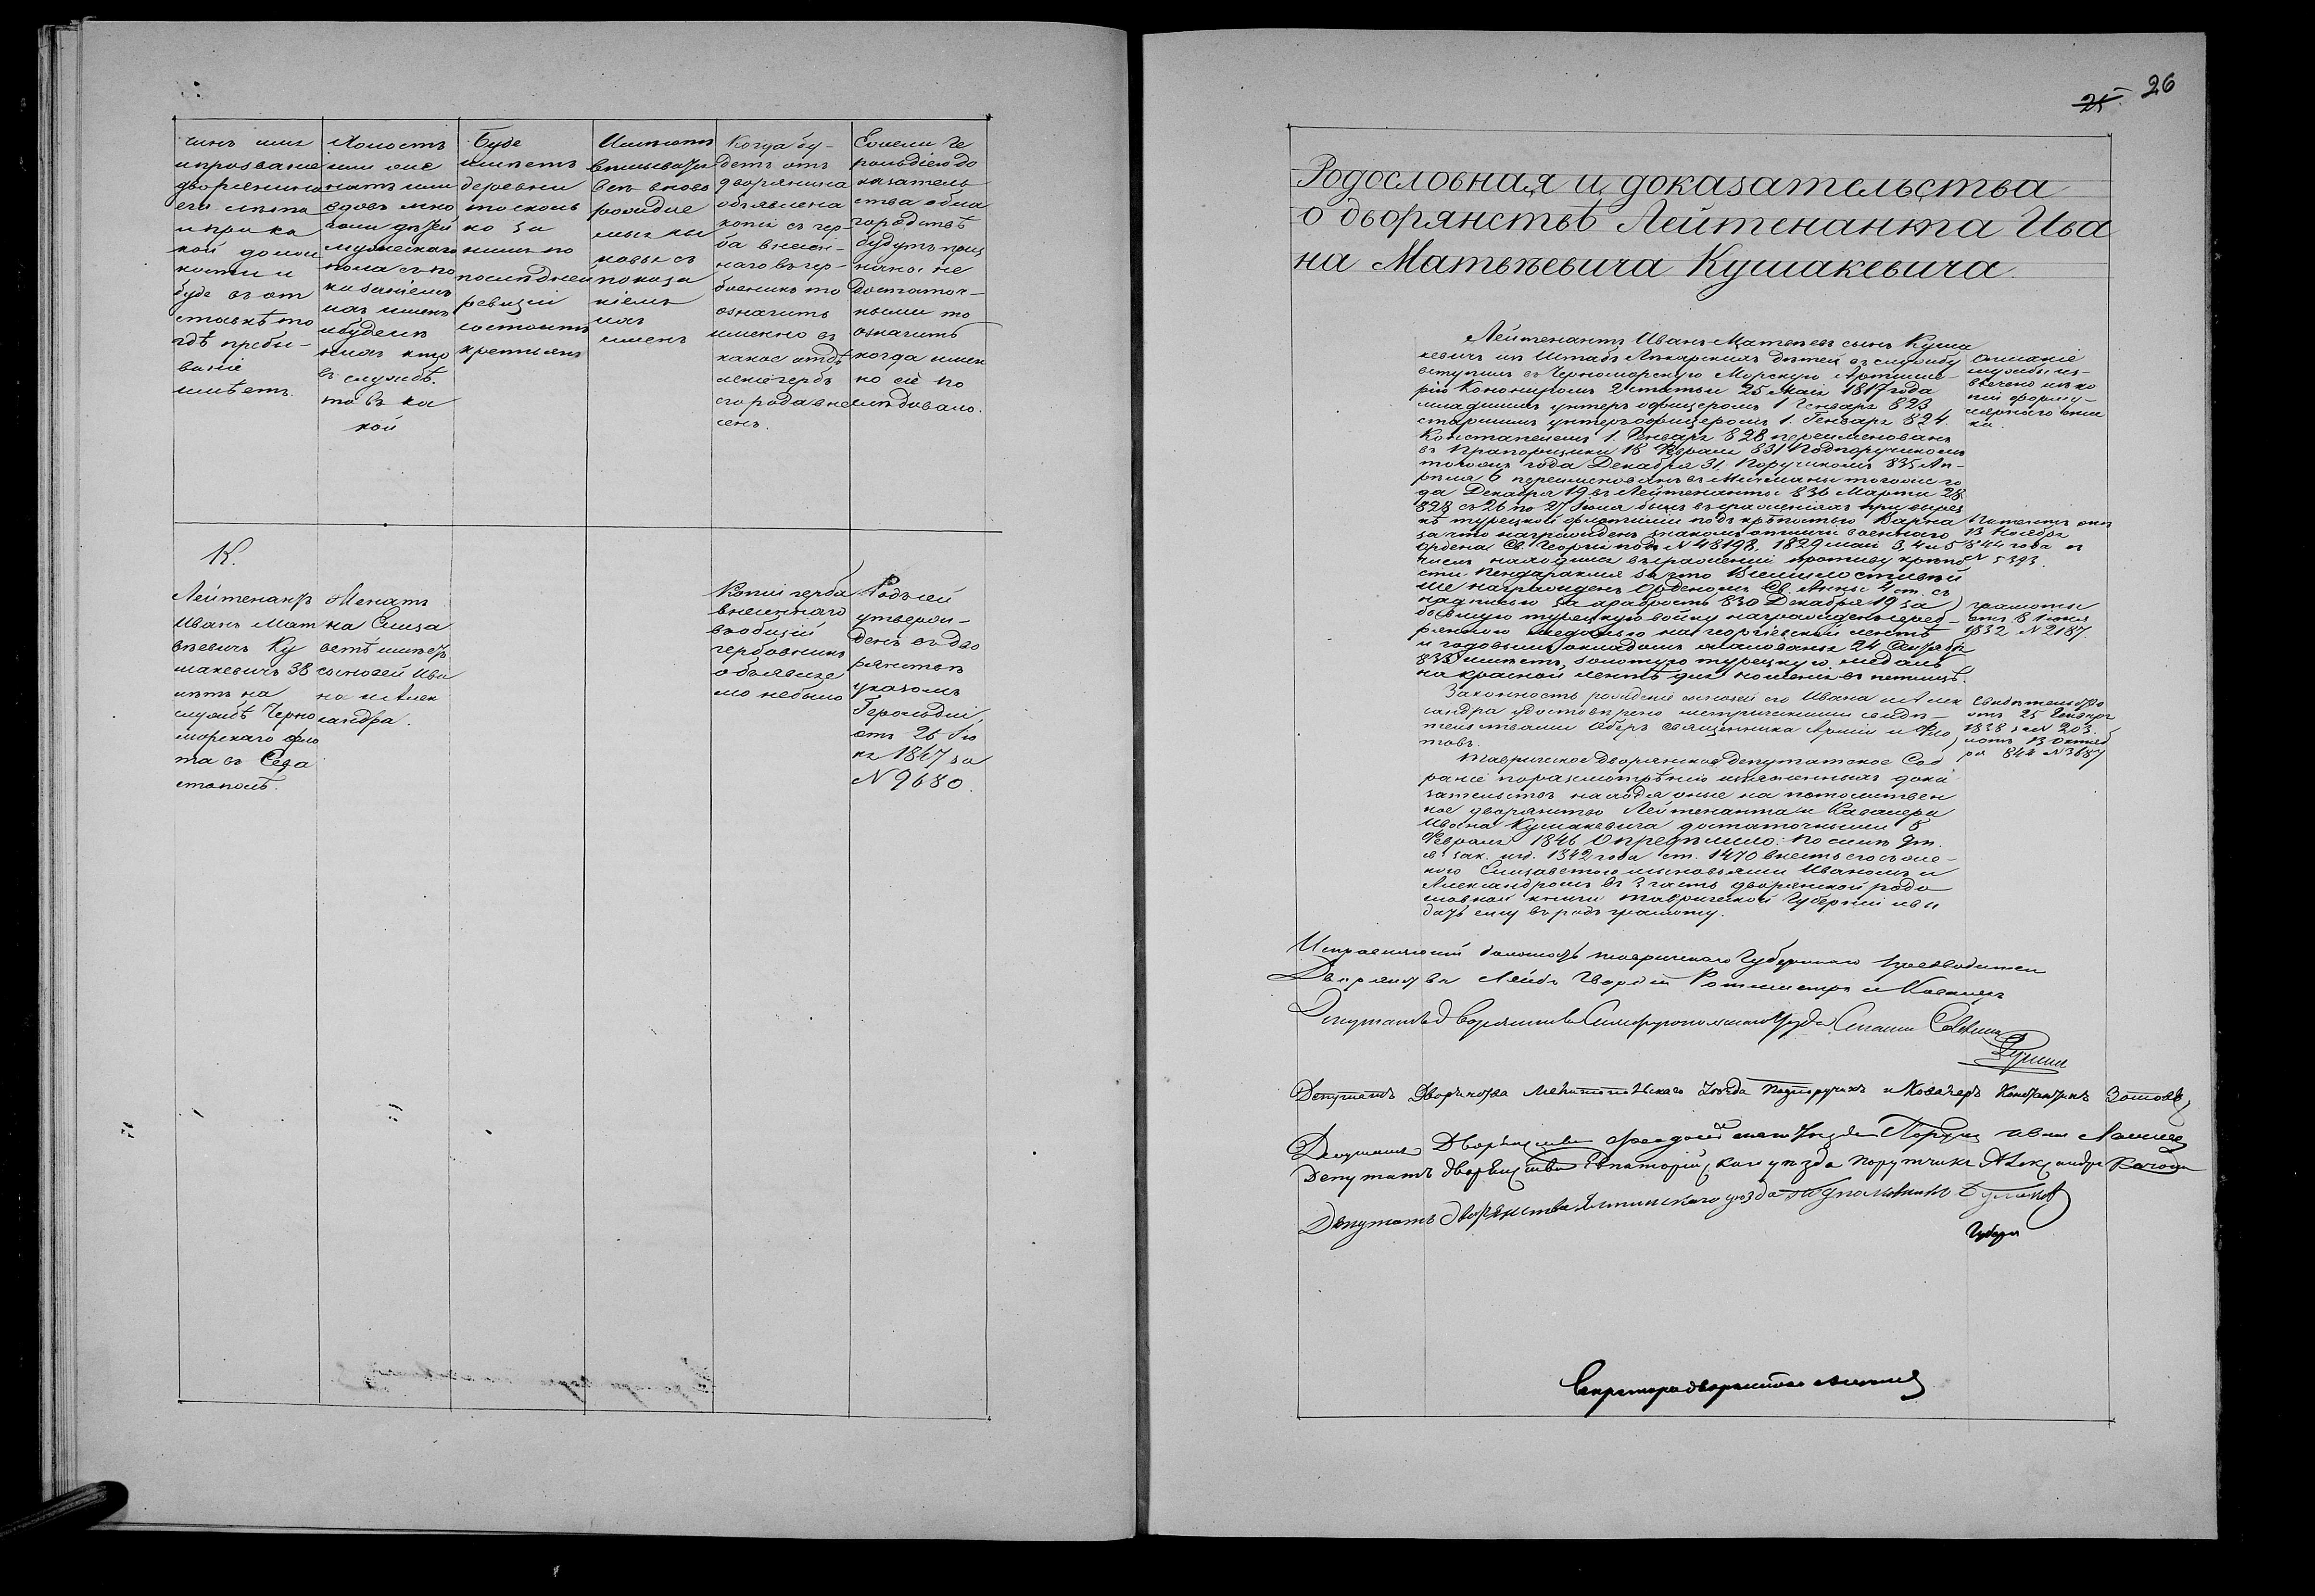 чинъ имя
и прозвание
дворянина
его лѣта
и при ка
кой долж
ности и
буде въ от
ставкѣ то
гдѣ пребы-
ваніе
имѣетъ.
Холостъ
или же
натъ или
вдовъ мно
голи дѣтей
мужескаго
пола съ по
казаніемъ
ихъ именъ
и буде изъ
нихъ кто
въ службѣ
то въ ка
кой
Буде
имѣетъ
деревни
то сколь
ко за
нимъ по
послѣдней
ревизіи
состоитъ
крестьянъ
вновь
рожден
показа
ніемъ
ихъ
именъ
Когда бу-
детъ отъ
дворянина
объявлена
копія съ гер-
ба внесен-
наго въ гер-
бовникъ то
означить
именно въ
какое отдѣ
леніе гербъ
его рода вне
сенъ.
Ежели Ге
рольдіею до
казатель
ства о бла
городствѣ
будутъ приз
наны не
достаточ-
ными то
означить
когда имен
но сіе по
слѣдовало.
К.
Лейтенантъ
Иванъ Мат
вѣевичъ Ку
шакевичъ 38
лѣтъ на
службѣ Черно
морскаго фло
та въ Сева
стополѣ.
Женатъ
на Елиза
ветѣ имѣетъ
сыновей Ива
на и Алек
сандра.
Копіи герба
внесеннаго
въ общій
гербовникъ
объявляе
мо небыло
Родъ сей
утверж-
денъ въ дво
рянствѣ
указомъ
Герольдіи
отъ 26 Ію
ня 1847 за
№ 9680.
25. 26
Родословная и доказательства
о дворянствѣ Лейтенанта Ива
на Матвѣевича Кушакевича.
Лейтенантъ Иванъ Матвѣевъ сынъ Куша
кевичъ изъ Штабъ Лѣкарскихъ дѣтей въ службу
вступилъ въ Черноморскую Морскую Артилле-
рію Кононеромъ 2 статьи 25 Мая 1817 года
младшимъ унтеръ офицеромъ 1 Генваря 823
старшимъ унтеръ офицеромъ 1. Генваря 824.
Констапелемъ 1. Генваря 828 переименованъ
въ Прапорщики 18 Февраля 831 Подпоручикомъ
тогожъ года Декабря 31. Поручикомъ 835 Ап-
рѣля 6 переименованъ въ Мичманы тогоже го
да Декабря 19 въ Лейтенанты 836 Марта 28.
828 съ 26 по 27 Іюля былъ въ сраженіяхъ при вырез
кѣ турецкой флотиліи подъ крѣпостью Варна
за что награжденъ знакомъ отличія военнаго
Ордена Св. Георгія подъ № 48198. 1829 мая 3, 4 и 5
чиселъ находился въ сраженіи противу крѣпо
сти Пендераклія за что Всемилостивѣй
ше награжденъ Орденомъ Св. Анны 4 ст. съ
надписью за храбрость 830 Декабря 19 за
бывшую турецкую войну награжденъ сереб-
рянною медалью на георгіевской лентѣ
и годовымъ окладомъ жалованья 24 Октября
833 имѣетъ золотую турецкую медаль
на красной лентѣ для ношенія въ петлицѣ.
Законность рожденія сыновей его Ивана и Алек
сандра удостовѣрено метрическими свидѣ-
тельствами Оберъ священника Арміи и Фло
товъ.
Таврическое Дворянское Депутатское Соб
раніе по разсмотрѣніи изъясненныхъ дока
зательствъ находя оные на потомствен
ное дворянство Лейтенанта и Кавалера
Ивана Кушакевича достаточными 8
Февраля 1846 Опредѣлило: по силѣ 9 т.
св. зак. изд. 1842 года ст. 1470 внесть его съ же-
ною Елизаветою и сыновьями Иваномъ и
Александромъ въ 3 часть дворянской родо
словной книги Таврической Губерніи и вы
дать ему въ родъ грамоту.
Описаніе
службы из-
влечено изъ ко
піи форму-
лярнаго спис
ка
Патентъ отъ
13 Ноября
844 года
№ 5393.
грамоты
отъ 8 Іюня
1832 № 2187
Свидѣтельство
отъ 25 Генваря
1838 за № 203.
и отъ 13 Октяб
ря 844 № 3687
Исправляющій должность Таврическаго Губернскаго Предводителя
Дворянства Лейбъ Гвардіи Ротмистръ и Кавалеръ
Депутатъ дворянства Симферопольскаго Уѣзда
Депутатъ Дворянства Мелитопольскаго Уѣзда Подпоручикъ и Кавалеръ Константинъ Зотовъ
Депутатъ Дворянства Феодосійскаго Уѣзда Иванъ
Депутатъ дворянства Евпаторійскаго уѣзда Порутчикъ Александръ
Депутатъ дворянства Ялтинскаго уѣзда
Секретарь дворянства